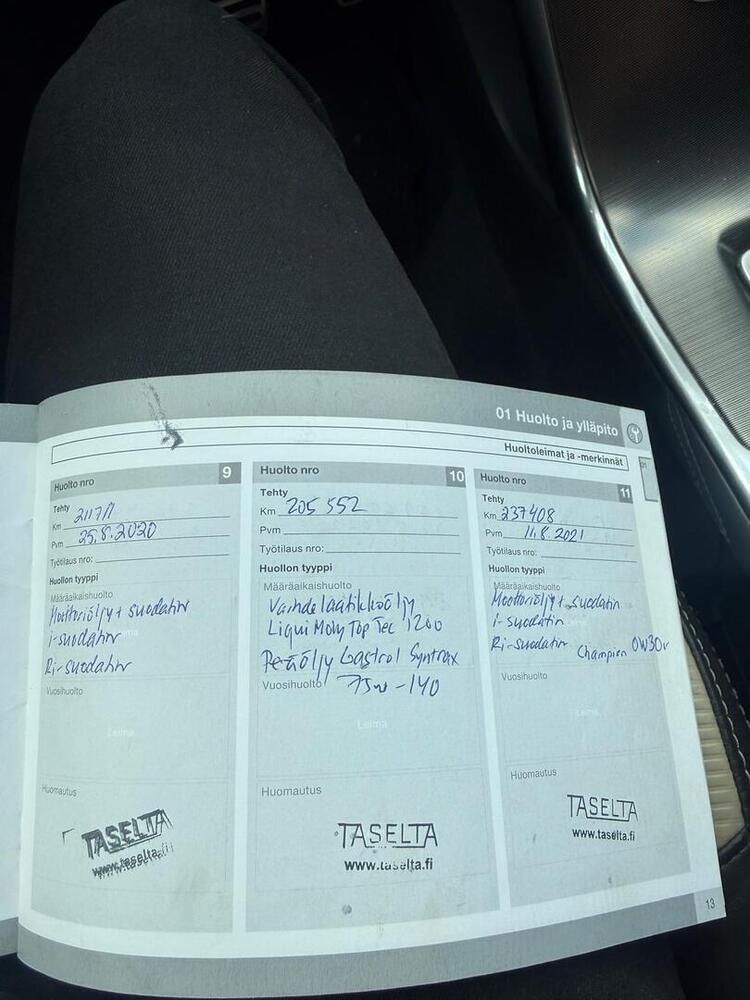 01 Huolto ja ylläpito
Huoltoleimat ja -merkinnät
01
Huolto nro 9
Tehty
Km 211711
Pvm 25.8.2020
Työtilaus nro:
Huollon tyyppi
Määräaikaishuolto
Moottoriöljy + suodatin
i-suodatin
Ri-suodatin
Vuosihuolto
Leima
Huomautus
TASELTA
www.taselta.fi
Huolto nro 10
Tehty
Km 205 552
Pvm
Työtilaus nro:
Huollon tyyppi
Määräaikaishuolto
Vaihdelaatikkoöljy
Liqui Moly Top Tec 1200
Peräöljy Castrol Syntrax
Vuosihuolto 75w-140
Leima
Huomautus
TASELTA
www.taselta.fi
Huolto nro 11
Tehty
Km 237408
Pvm 11.8.2021
Työtilaus nro:
Huollon tyyppi
Määräaikaishuolto
Moottoriöljy + suodatin
i-suodatin
Ri-suodatin Champion 0W30
Vuosihuolto
Leima
Huomautus
TASELTA
www.taselta.fi
13